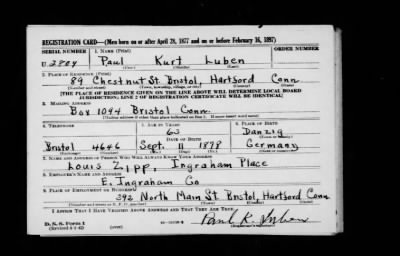 REGISTRATION CARD—(Men born on or after April 28, 1877 and on or before February 16, 1897)
SERIAL NUMBER 1. NAME (Print) ORDER NUMBER
U 2804 Paul Kurt Luben
(First) (Middle) (Last)
2. PLACE OF RESIDENCE (Print)
89 Chestnut St. Bristol, Hartford Conn
(Number and street) (Town, township, village, or city) (County) (State)
[THE PLACE OF RESIDENCE GIVEN ON THE LINE ABOVE WILL DETERMINE LOCAL BOARD
JURISDICTION; LINE 2 OF REGISTRATION CERTIFICATE WILL BE IDENTICAL]
3. MAILING ADDRESS
Box 1094 Bristol Conn.
[Mailing address if other than place indicated on line 2. If same insert word same]
4. TELEPHONE 5. AGE IN YEARS 6. PLACE OF BIRTH
63 Danzig
DATE OF BIRTH (Town or county)
Bristol 4646 Sept. 11 1878 Germany
(Exchange) (Number) (Mo.) (Day) (Yr.) (State or country)
7. NAME AND ADDRESS OF PERSON WHO WILL ALWAYS KNOW YOUR ADDRESS
Louis Zipp, Ingraham Place
8. EMPLOYER'S NAME AND ADDRESS
E. Ingraham Co
9. PLACE OF EMPLOYMENT OR BUSINESS
392 North Main St. Bristol, Hartford Conn
(Number and street or R. F. D. number) (Town) (County) (State)
I AFFIRM THAT I HAVE VERIFIED ABOVE ANSWERS AND THAT THEY ARE TRUE.
D. S. S. Form 1
Paul K. Luben